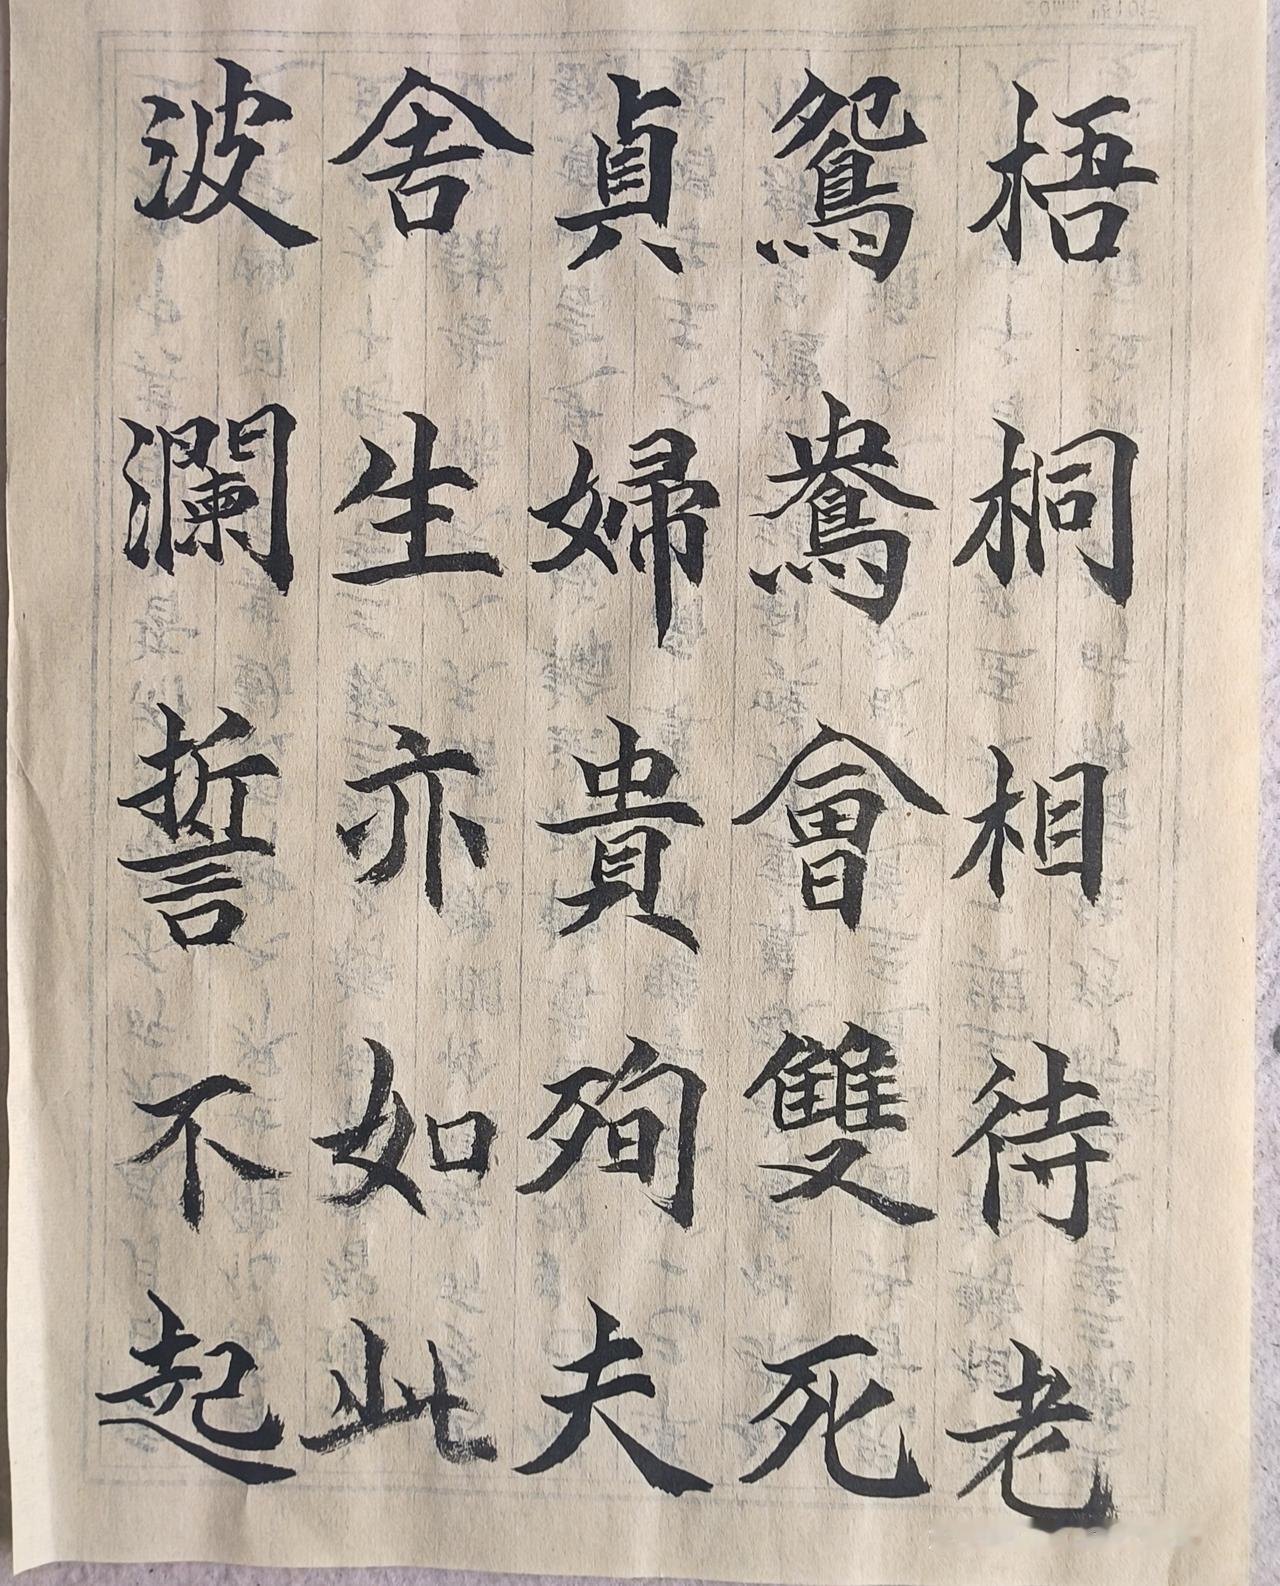 梧桐相待老
鴛鴦會雙死
貞婦貴殉夫
舍生亦如此
波瀾誓不起